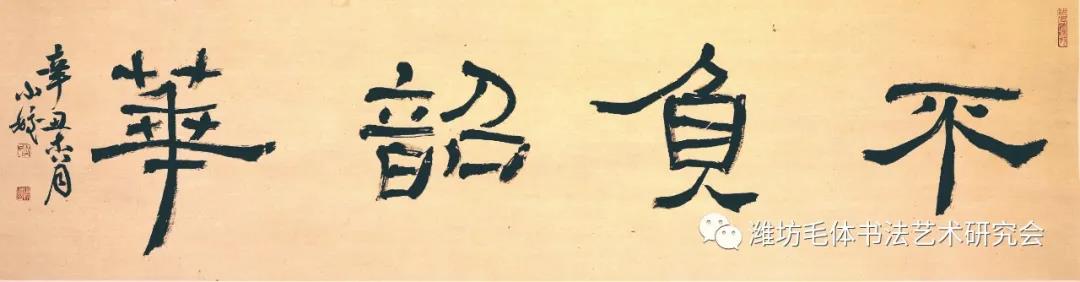 不負韶華
辛丑月
小
潍坊毛体书法艺术研究会